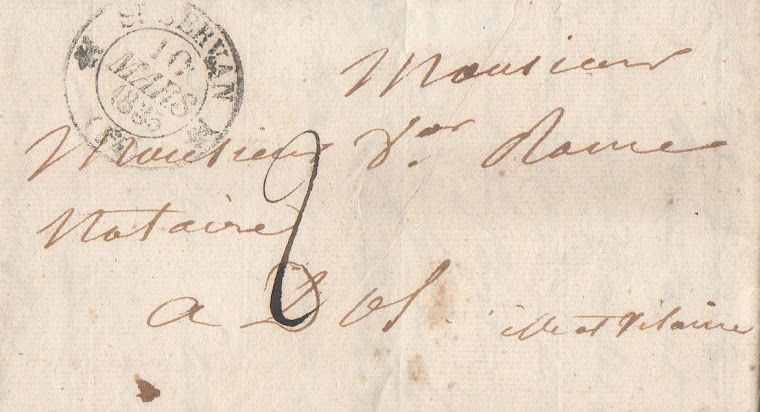 ST SERVAN
16
MARS
1835
(34)
Monsieur
Monsieur Rame
Notaire
2
a Dol ille et Vilaine